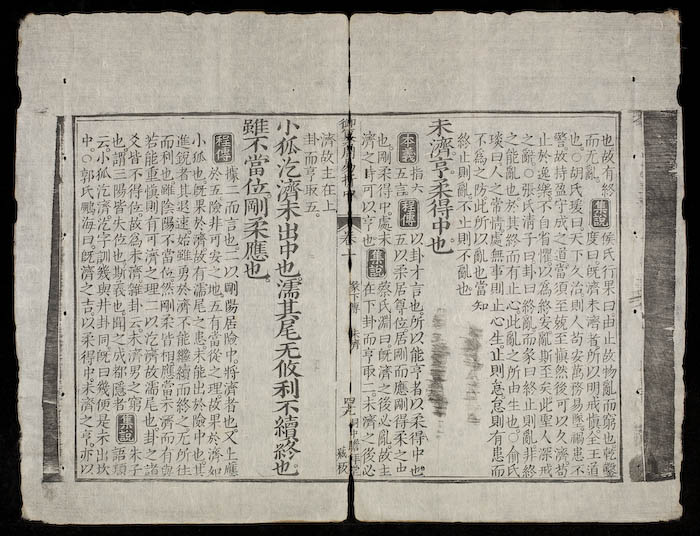 也故有終 集說 侯氏行果曰由止故物亂而窮也乾鑿
而无亂 度曰既濟未濟者所以明戒慎全王道
也○胡氏瑗曰天下久治則人苟安萬務易墜禍患不
警故持盈守成之道當須至兢至慎然後可以久濟苟
止於逸樂不自省懼以爲終安亂斯至矣此聖人深戒
之辭○張氏清子曰卦曰終亂而彖曰終止則亂非終
之能亂也於其終而有止心此亂之所由生也○俞氏
琰曰人之常情處無事則止心生止則怠怠則有患而
不爲之防此所以亂也當知
終止則亂不止則不亂也
未濟亨柔得中也
本義 指六 程傳 以卦才言也所以能亨者以柔得中也
五言 五以柔居尊位居剛而應剛得柔之中
也剛柔得中處未 集說 蔡氏淵曰既濟之後必亂故主
濟之時可以亨也 在下卦而亨取二未濟之後必
御纂周易折中 卷十 彖下傳 未濟
濟故主在上
卦而亨取五
小狐汔濟未出中也濡其尾无攸利不續終也
雖不當位剛柔應也
程傳 據二而言也二以剛陽居險中將濟者也又上應
於五險非可安之地五有當從之理故果於濟如
小狐也既果於濟故有濡尾之患未能出於險中也其
進銳者其退速始雖勇於濟不能繼續而終之无所往
而利也雖陰陽不當位然剛柔皆相應當未濟而有與
若能重慎則有可濟之理二以汔濟故濡尾也卦之諸
爻皆不得位故爲未濟雜卦云未濟男之窮 集說 朱子
也謂三陽皆失位也斯義也聞之成都隱者 語類
云小狐汔濟汔字訓幾與井卦同既曰幾便是未出坎
中○郭氏鵬海曰既濟之吉以柔得中未濟之亨亦以